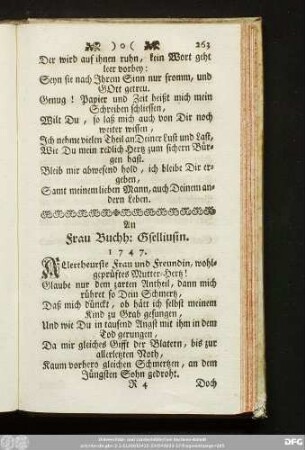 )o( 263
Der wird auf ihnen ruhn, kein Wort geht
leer vorbey:
Seyn sie nach Ihrem Sinn nur fromm, und
GOtt getreu.
Genug! Papier und Zeit heißt mich mein
Schreiben schliessen,
Wilt Du, so laß mich auch von Dir noch
weiter wissen,
Ich nehme vielen Theil an Deiner Lust und Last,
Wie Du mein redlich Hertz zum sichern Bür-
gen hast.
Bleib mir abwesend hold, ich bleibe Dir er-
geben,
Samt meinem lieben Mann, auch Deinem an-
dern Leben.
An
Frau Buchh: Gselliusin.
1747.
ALlertheurste Frau und Freundin, wohl-
geprüftes Mutter-Hertz!
Glaube nur dem zarten Antheil, dann mich
rühret so Dein Schmertz,
Daß mich dünckt, ob hätt ich selbst meinem
Kind zu Grab gesungen,
Und wie Du in tausend Angst mit ihm in dem
Tod gerungen,
Da mir gleiches Gifft der Blatern, bis zur
allerletzten Noth,
Kaum vorhero gleichen Schmertzen, an dem
Jüngsten Sohn gedroht.
R 4 Doch